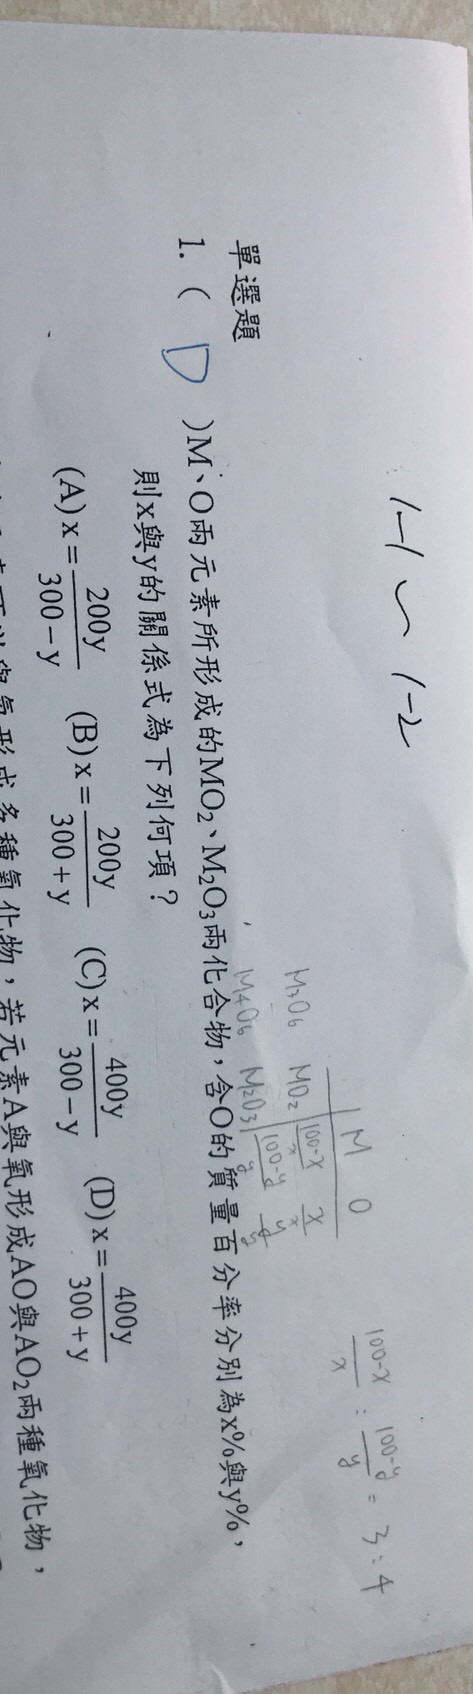 1-1 ~ 1-2
M O
MO₂ 100-x/x x/x
M₂O₃ 100-y/y y/y
M₃O₆
M₄O₆
100-x/x : 100-y/y = 3:4
單選題
1. ( D )M、O兩元素所形成的MO₂、M₂O₃兩化合物,含O的質量百分率分別為x%與y%,
則x與y的關係式為下列何項?
(A)x=200y/300-y (B)x=200y/300+y (C)x=400y/300-y (D)x=400y/300+y
可以與氧形成多種氧化物,若元素A與氧形成AO與AO₂兩種氧化物,